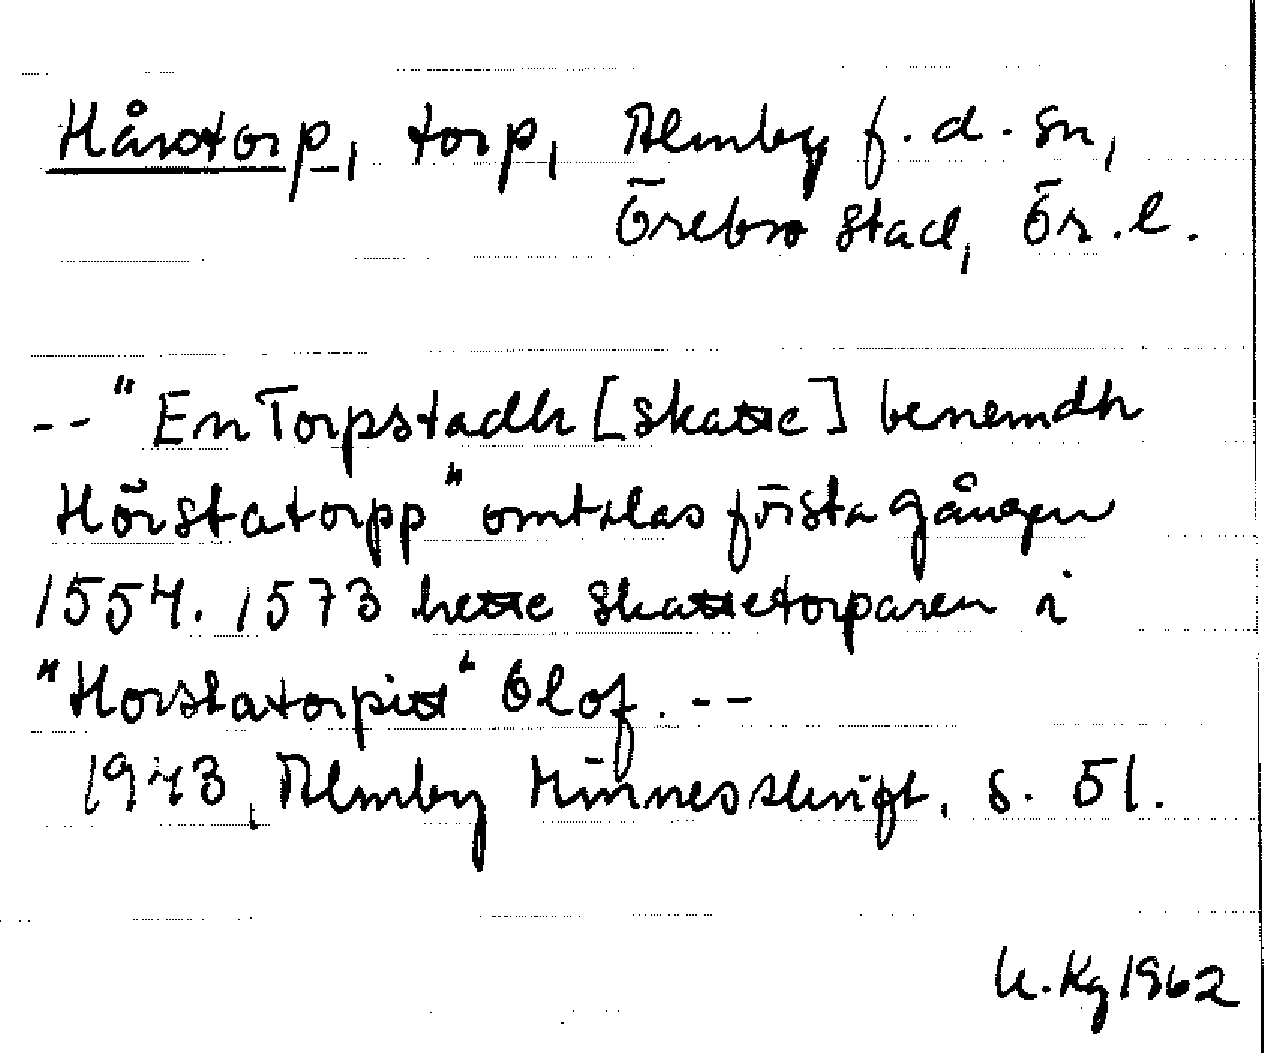 Hårstorp, torp, Almby f.d. sn,
Örebro stad, Ör.l.
-- "En Torpstadh [skatte] benemdh
Hörstatorpp" omtalas första gången
1554. 1573 hette skattetorparen i
"Horstatorpitt" Olof. --
1943, Almby Minnesskrift, s. 51.
U.Kg 1962